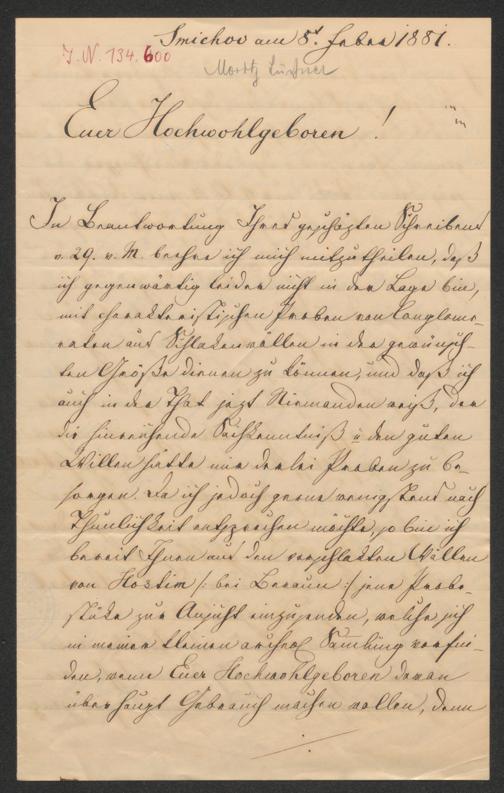 Smichov am 8t. Feber 1881.
I. N. 134.600
Moritz Lüssner
Euer Hochwohlgeboren !
In Beantwortung Ihres geschäzten Schreibens
v. 29. v. M. beehre ich mich mitzutheilen, daß
ich gegenwärtig leider nicht in der Lage bin,
mit charakteristischen Proben von Conglome-
raten aus Schlakenwällen in der gewünsch-
ten Größe dienen zu können, und daß ich
auch in der That jezt Niemanden weiß, der
die hinreichende Sachkenntniß u den guten
Willen hätte mir derlei Proben zu be-
sorgen. Da ich jedoch gerne wenigstens nach
Thunlichkeit entsprechen möchte, so bin ich
bereit Ihnen aus den verschlakten Wällen
von Hostim /: bei Beraun :/ jene Probe-
stüke zur Ansicht einzusenden, welche sich
in meiner kleinen archeol Samlung vorfin-
den, wenn Euer Hochwohlgeboren davon
überhaupt Gebrauch machen wollen, denn